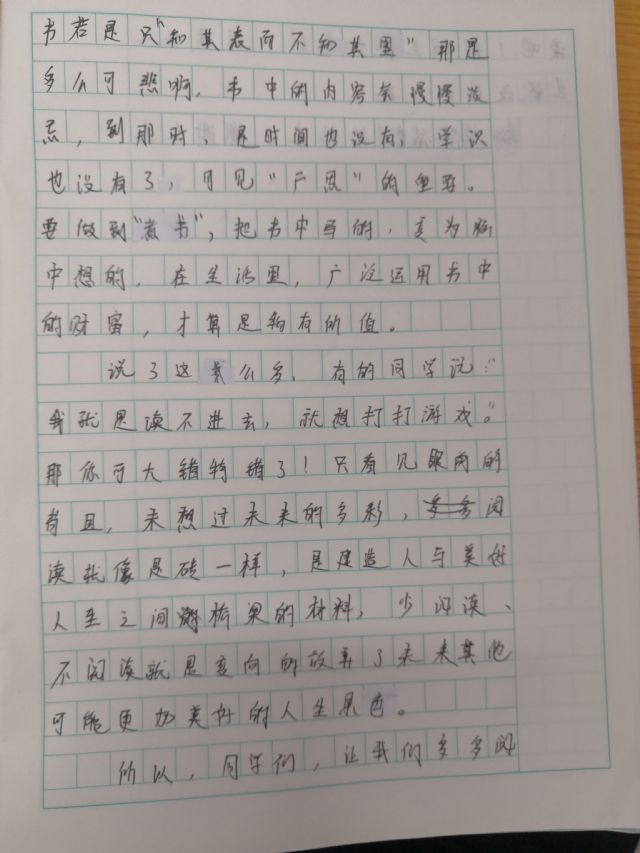 书若是只“知其表而不知其里”那是
多么可悲啊，书中的内容会慢慢淡
忘，到那时，是时间也没有，学识
也没有了，可见“广思”的重要。
要做到“煮书”，把书中写的，变为脑
中想的，在生活里，广泛运用书中
的财富，才算是拥有价值。
说了这么多，有的同学说：“
我就是读不进去，就想打打游戏。”
那你可大错特错了！只看见眼两的
苟且，未想过未来的多彩，阅
读就像是砖一样，是建造人与美好
人生之间桥梁的材料，少阅读、
不阅读就是变向的放弃了未来其他
可能更加美好的人生景色。
所以，同学们，让我们多多阅